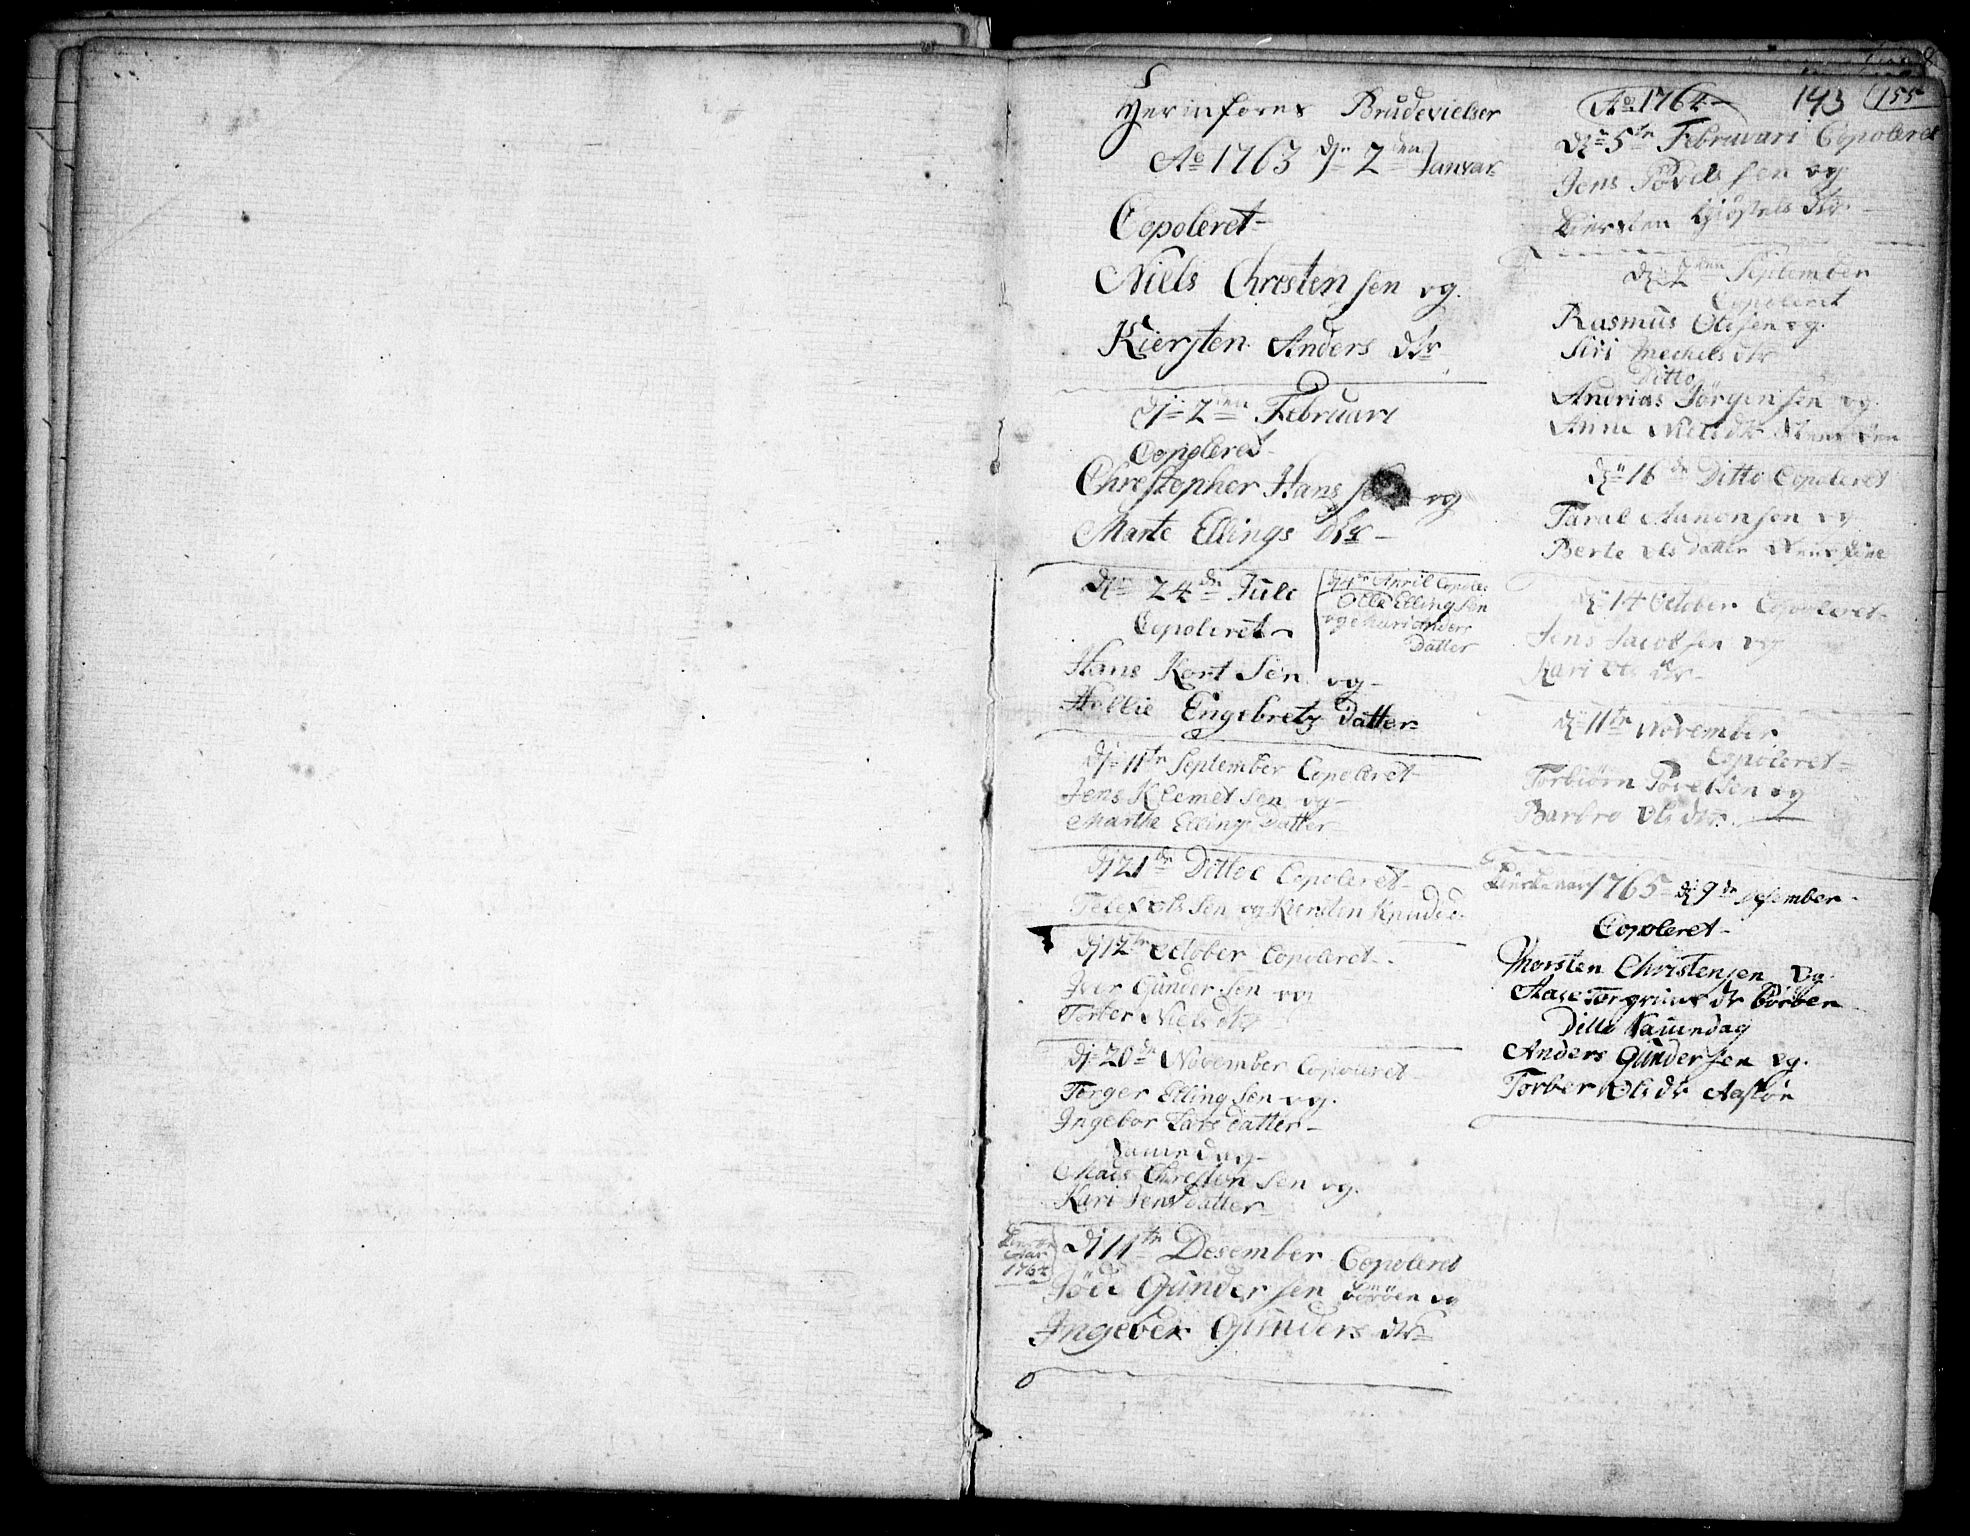 Her infores Brudevielser
Ao 1763 dn 2 den Januar
Copoleret
Niels Chresten sen og
Kiersten Anders dtr
dn 2 den Februari
Copoleret
Christopher Hans sen og
Marte Ellings dtr
dn 24 de Juli
Copoleret
dn April Copoler
Olle Elling Sen
og Kari Anders
Datter
Hans Kort Sen og
Engebretz Datter
dn 11te September Copoleret
Jens Klemet sen og
Marthe Elling Datter
dn 21 de Dittoe Copoleret
Ols Sen og Kiersten Knuds
dn 12te October Copoleret
Iver Gunder Sen og
Torber Niels dtr
dn 20de November Copoleret
Torger Elling Sen og
Ingebor Lars datter
Same dag
Mads Chresten Sen og
Kari Jens datter
Kircke
aar
1764
dn 11te Desember Copoleret
Gunder sen og
Ingebor Gunders dtr
Ao 1764
193
155
dn 5te Februari Copoleret
Jens Povels sen og
Kiersten dtr
dn 2 den September
Copoleret
Rasmus Ole sen og
Siri Meckels dtr
Ditto
Andrias Jörgen sen og
Anne Niels dtr
dn 16 de Ditto Copoleret
Taral Aanon sen og
Berte Ols datter
dn 14 October Copoleret
Jens Jacob sen og
Kari Ols dtr
dn 11te November
Copoleret
Torbiörn Povel Sen og
Barbro Ols dtr
Kircke aar 1765 dn 9de Desember
Copoleret
Thorsten Christensen og
Aase Torgrims dr
Ditto Samedag
Anders Gunder sen og
Torber Ols dr